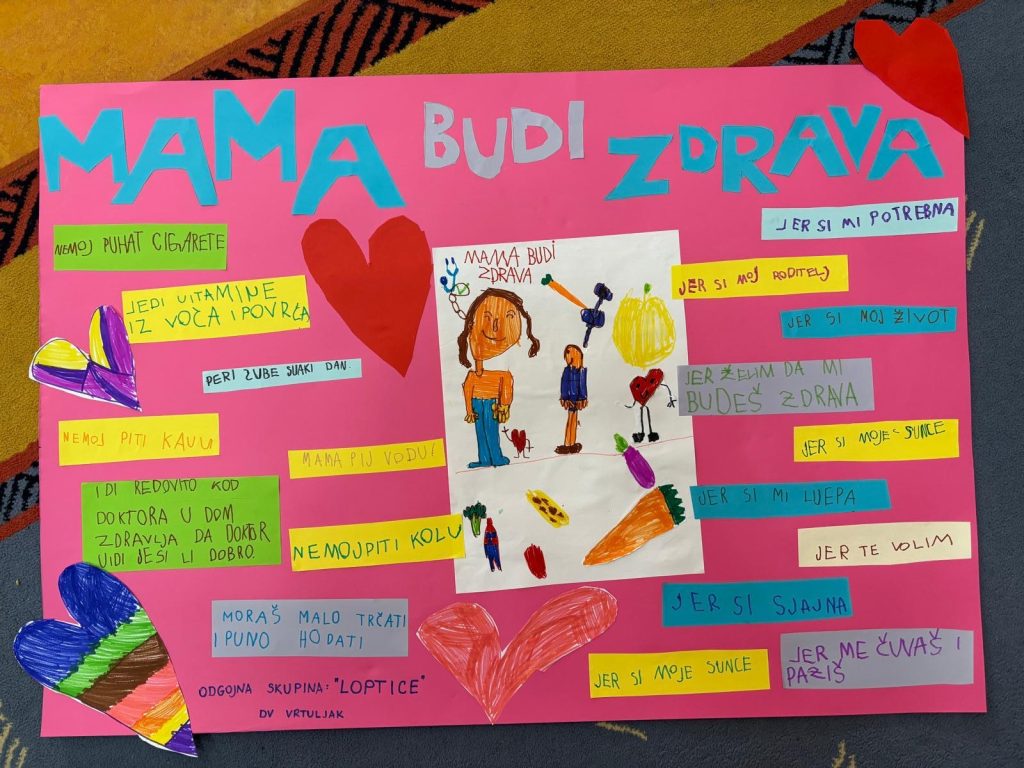 MAMA BUDI ZDRAVA
NEMOJ PUHAT CIGARETE
JEDI VITAMINE
IZ VOĆA I POVRĆA
PERI ZUBE SVAKI DAN
NEMOJ PITI KAVU
MAMA PIJ VODU!
IDI REDOVITO KOD
DOKTORA U DOM
ZDRAVLJA DA DOKTOR
VIDI JESI LI DOBRO.
NEMOJPITI KOLU
MORAŠ MALO TRČATI
I PUNO HODATI
ODGOJNA SKUPINA: "LOPTICE"
DV VRTULJAK
MAMA BUDI
ZDRAVA
JER SI MI POTREBNA
JER SI MOJ RODITELJ
JER SI MOJ ŽIVOT
JER ŽELIM DA MI
BUDEŠ ZDRAVA
JER SI MOJE SUNCE
JER SI MI LIJEPA
JER TE VOLIM
JER SI SJAJNA
JER SI MOJE SUNCE
JER ME ČUVAŠ I
PAZIŠ